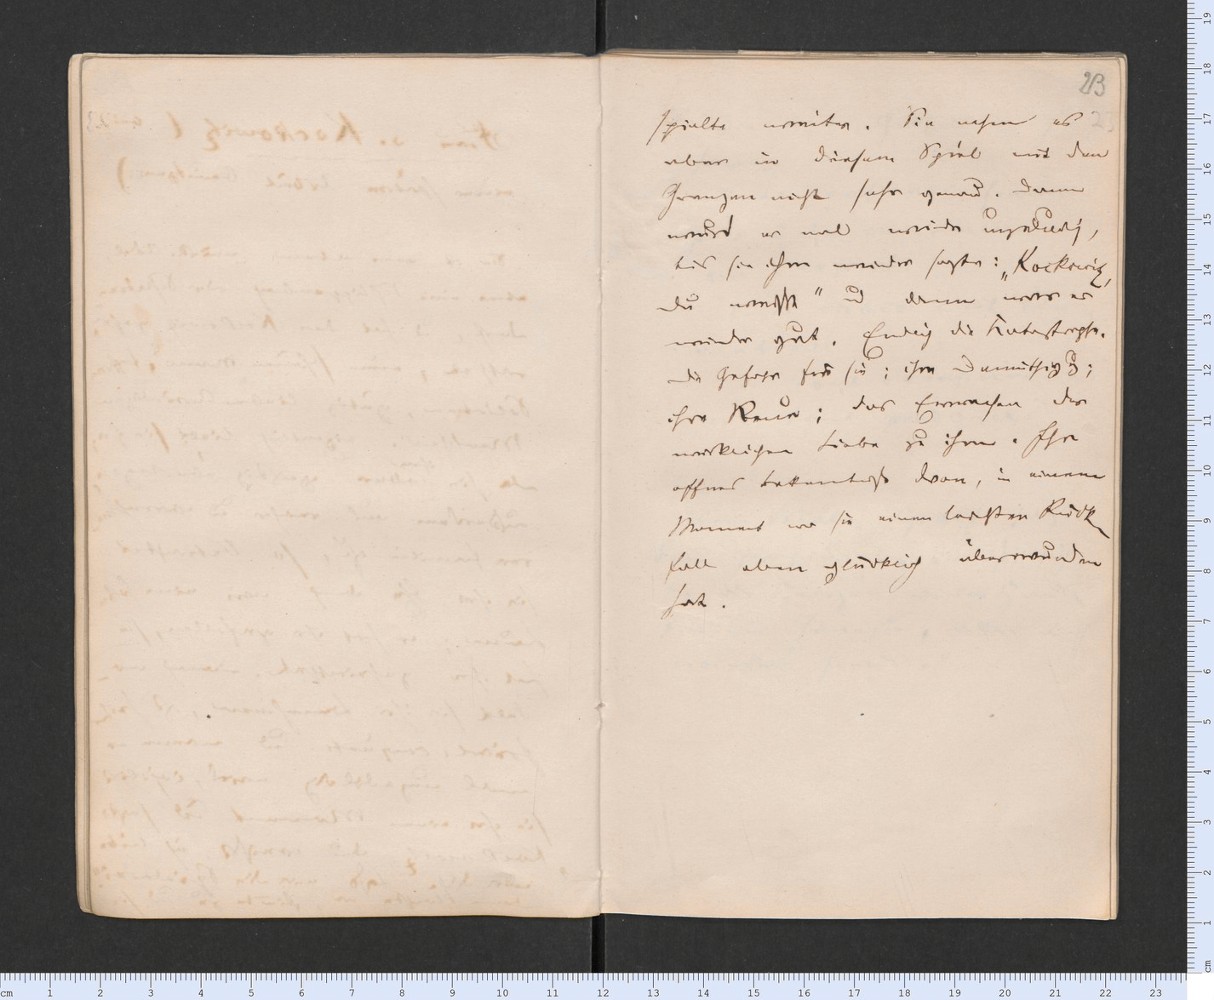 23
spielte weiter. Sie nahm es
aber in diesem Spiel mit den
Grenzen nicht sehr genau. Dann
wurd er mal wieder ungeduldig,
bis sie ihm wieder sagte: „Kockwitz,
Du weißt" und dann war er
wieder gut. Endlich die Katastrophe.
Die Gefahr für sie; ihre Demüthigung;
ihre Reue; das Erwachen der
wirklichen Liebe zu ihm. Ihr
offnes Bekenntniß davon, in einem
Moment wo sie einen leichten Rück
fall eben glücklich überwunden
hat.